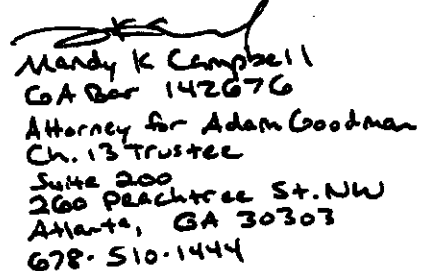 Mandy K Campbell
GA Bar 142676
Attorney for Adam Goodman
Ch. 13 Trustee
Suite 200
260 Peachtree St. NW
Atlanta, GA 30303
678-510-1444